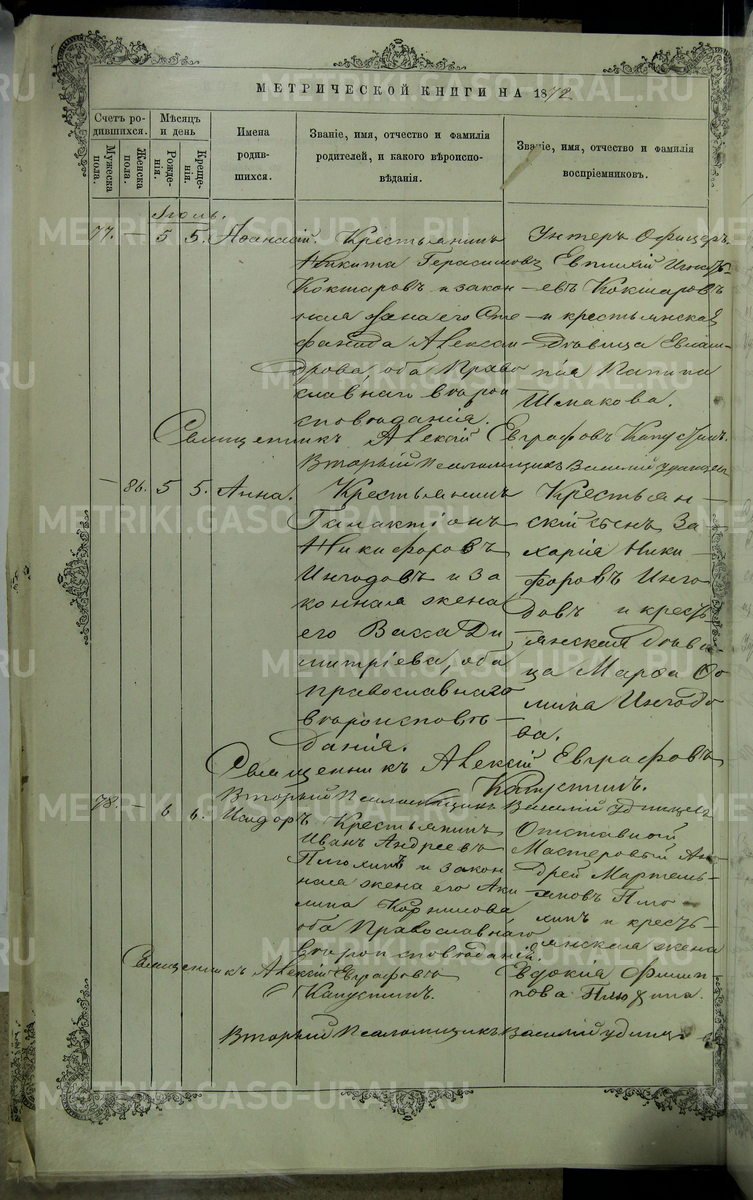 МЕТРИЧЕСКОЙ КНИГИ НА 1872
Счетъ ро-
дившихся.
Мужеска
пола.
Женска
пола.
Мѣсяцъ
и день
Рожде-
нія.
Креще-
нія.
Имена
родив-
шихся.
Званіе, имя, отчество и фамилія
родителей, и какого вѣроиспо-
вѣданія.
Званіе, имя, отчество и фамилія
воспріемниковъ.
Іюль.
77. — 5 5. Аѳанасій.
Крестьянинъ
Никита Герасимовъ
Кокшаровъ и закон-
ная жена его
Алексан-
дрова, оба Право
славнаго вѣрои
сповѣданія.
Унтеръ Офицеръ
Евтихій
евъ Кокшаровъ
и крестьянская
дѣвица
Шмакова.
Священникъ Алексій Евграфовъ Капустинъ.
Вторый Псаломщикъ Василій Удинцевъ
— 86. 5 5. Анна.
Крестьянинъ
Галактіонъ
Никифоровъ
Ингодовъ и за
конная жена
его Васса Ди
митріева, оба
православнаго
вѣроисповѣ—
данія.
Крестьян—
скій сынъ За
харія Ники
форовъ Инго
довъ и кресть
янская дѣви
ца Марѳа Ѳо
мина Ингодо
ва.
Священникъ Алексій Евграфовъ
Капустинъ.
Вторый Псаломщикъ Василій Удинцевъ
78. — 6 6. Исидоръ
Крестьянинъ
Иванъ Андреевъ
Плюхинъ и закон
ная жена его Аки
лина Корнилова
оба Православнаго
вѣроисповѣданій.
Отставной
Мастеровый Ан-
дрей Мартемь-
яновъ Плю—
хинъ и кресть-
янская жена
Евдокія Филип
пова Плюхина.
Священникъ Алексій Евграфовъ
Капустинъ.
Вторый Псаломщикъ Василій Удинц
METRIKI.GASO-URAL.RU